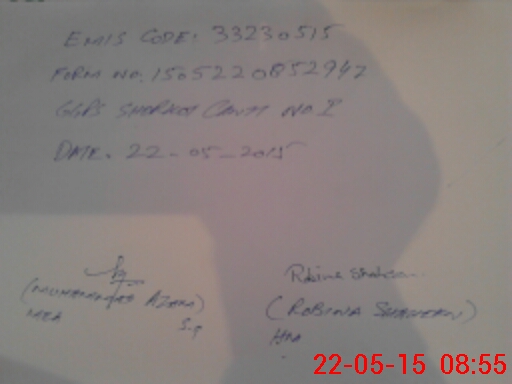 EMIS CODE: 33230515
FORM NO. 1505220852947
GGPS SHORKOT CANTT NO.I
DATE. 22-05-2015
Robina Shaheen
(MUHAMMAD AZAM)
(ROBINA SHAHEEN)
MEA
HM
22-05-15 08:55